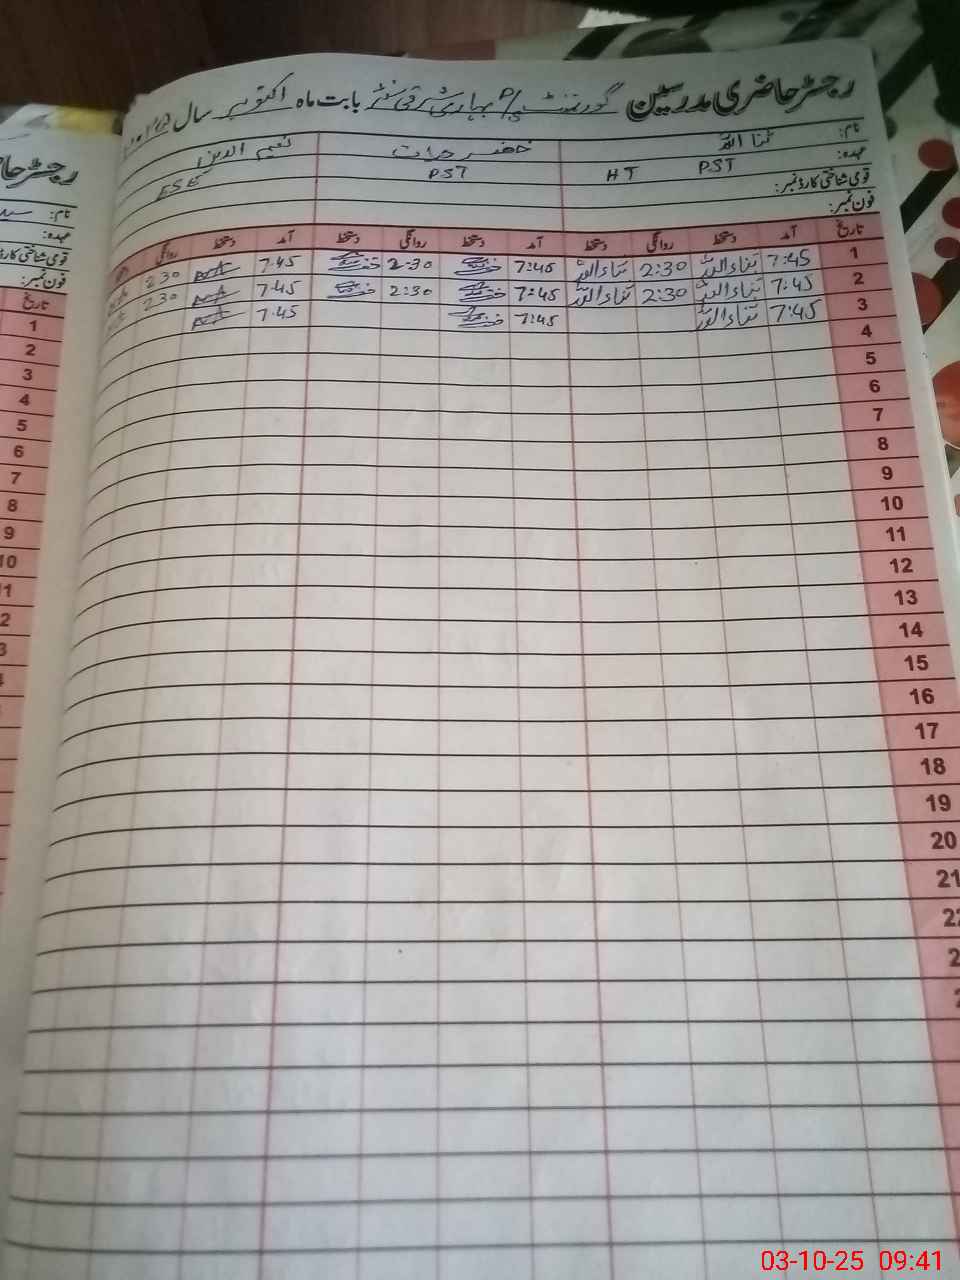 رجسٹر حاضری مدرسین گورنمنٹ P/S بہاری شرقی سنٹر بابت ماہ اکتوبر سال
نام: ثنا اللہ خضر حیات نعیم الدین
عہدہ: PST HT PST ESE
قومی شناختی کارڈ نمبر:
فون نمبر:
تاریخ آمد دستخط روانگی دستخط آمد دستخط روانگی دستخط آمد دستخط روانگی
1 7:45 ثناءاللہ 2:30 ثناءاللہ 7:45 2:30 7.45 2 30
2 7:45 ثناءاللہ 2:30 ثناءاللہ 7:45 2:30 7.45 2 30
3 7:45 ثناءاللہ 7:45 7.45
4
5
6
7
8
9
10
11
12
13
14
15
16
17
18
19
20
21
رجسٹر
نام:
عہدہ:
قومی شناختی کارڈ
فون نمبر:
تاریخ
1
2
3
4
5
6
7
8
9
10
03-10-25 09:41